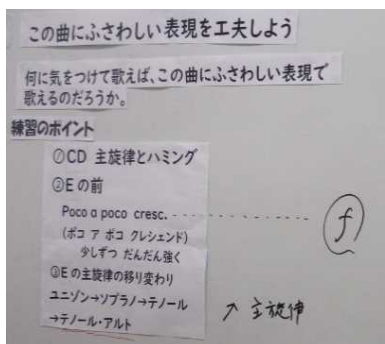 この曲にふさわしい表現を工夫しよう
何に気をつけて歌えば、この曲にふさわしい表現で
歌えるのだろうか。
練習のポイント
①CD 主旋律とハミング
②Eの前
Poco a poco cresc. - - - - - - - - - - - - - - - f
(ポコ ア ポコ クレシェンド)
少しずつ だんだん強く
③Eの主旋律の移り変わり
ユニゾン→ソプラノ→テノール
→テノール・アルト
↗ 主旋律